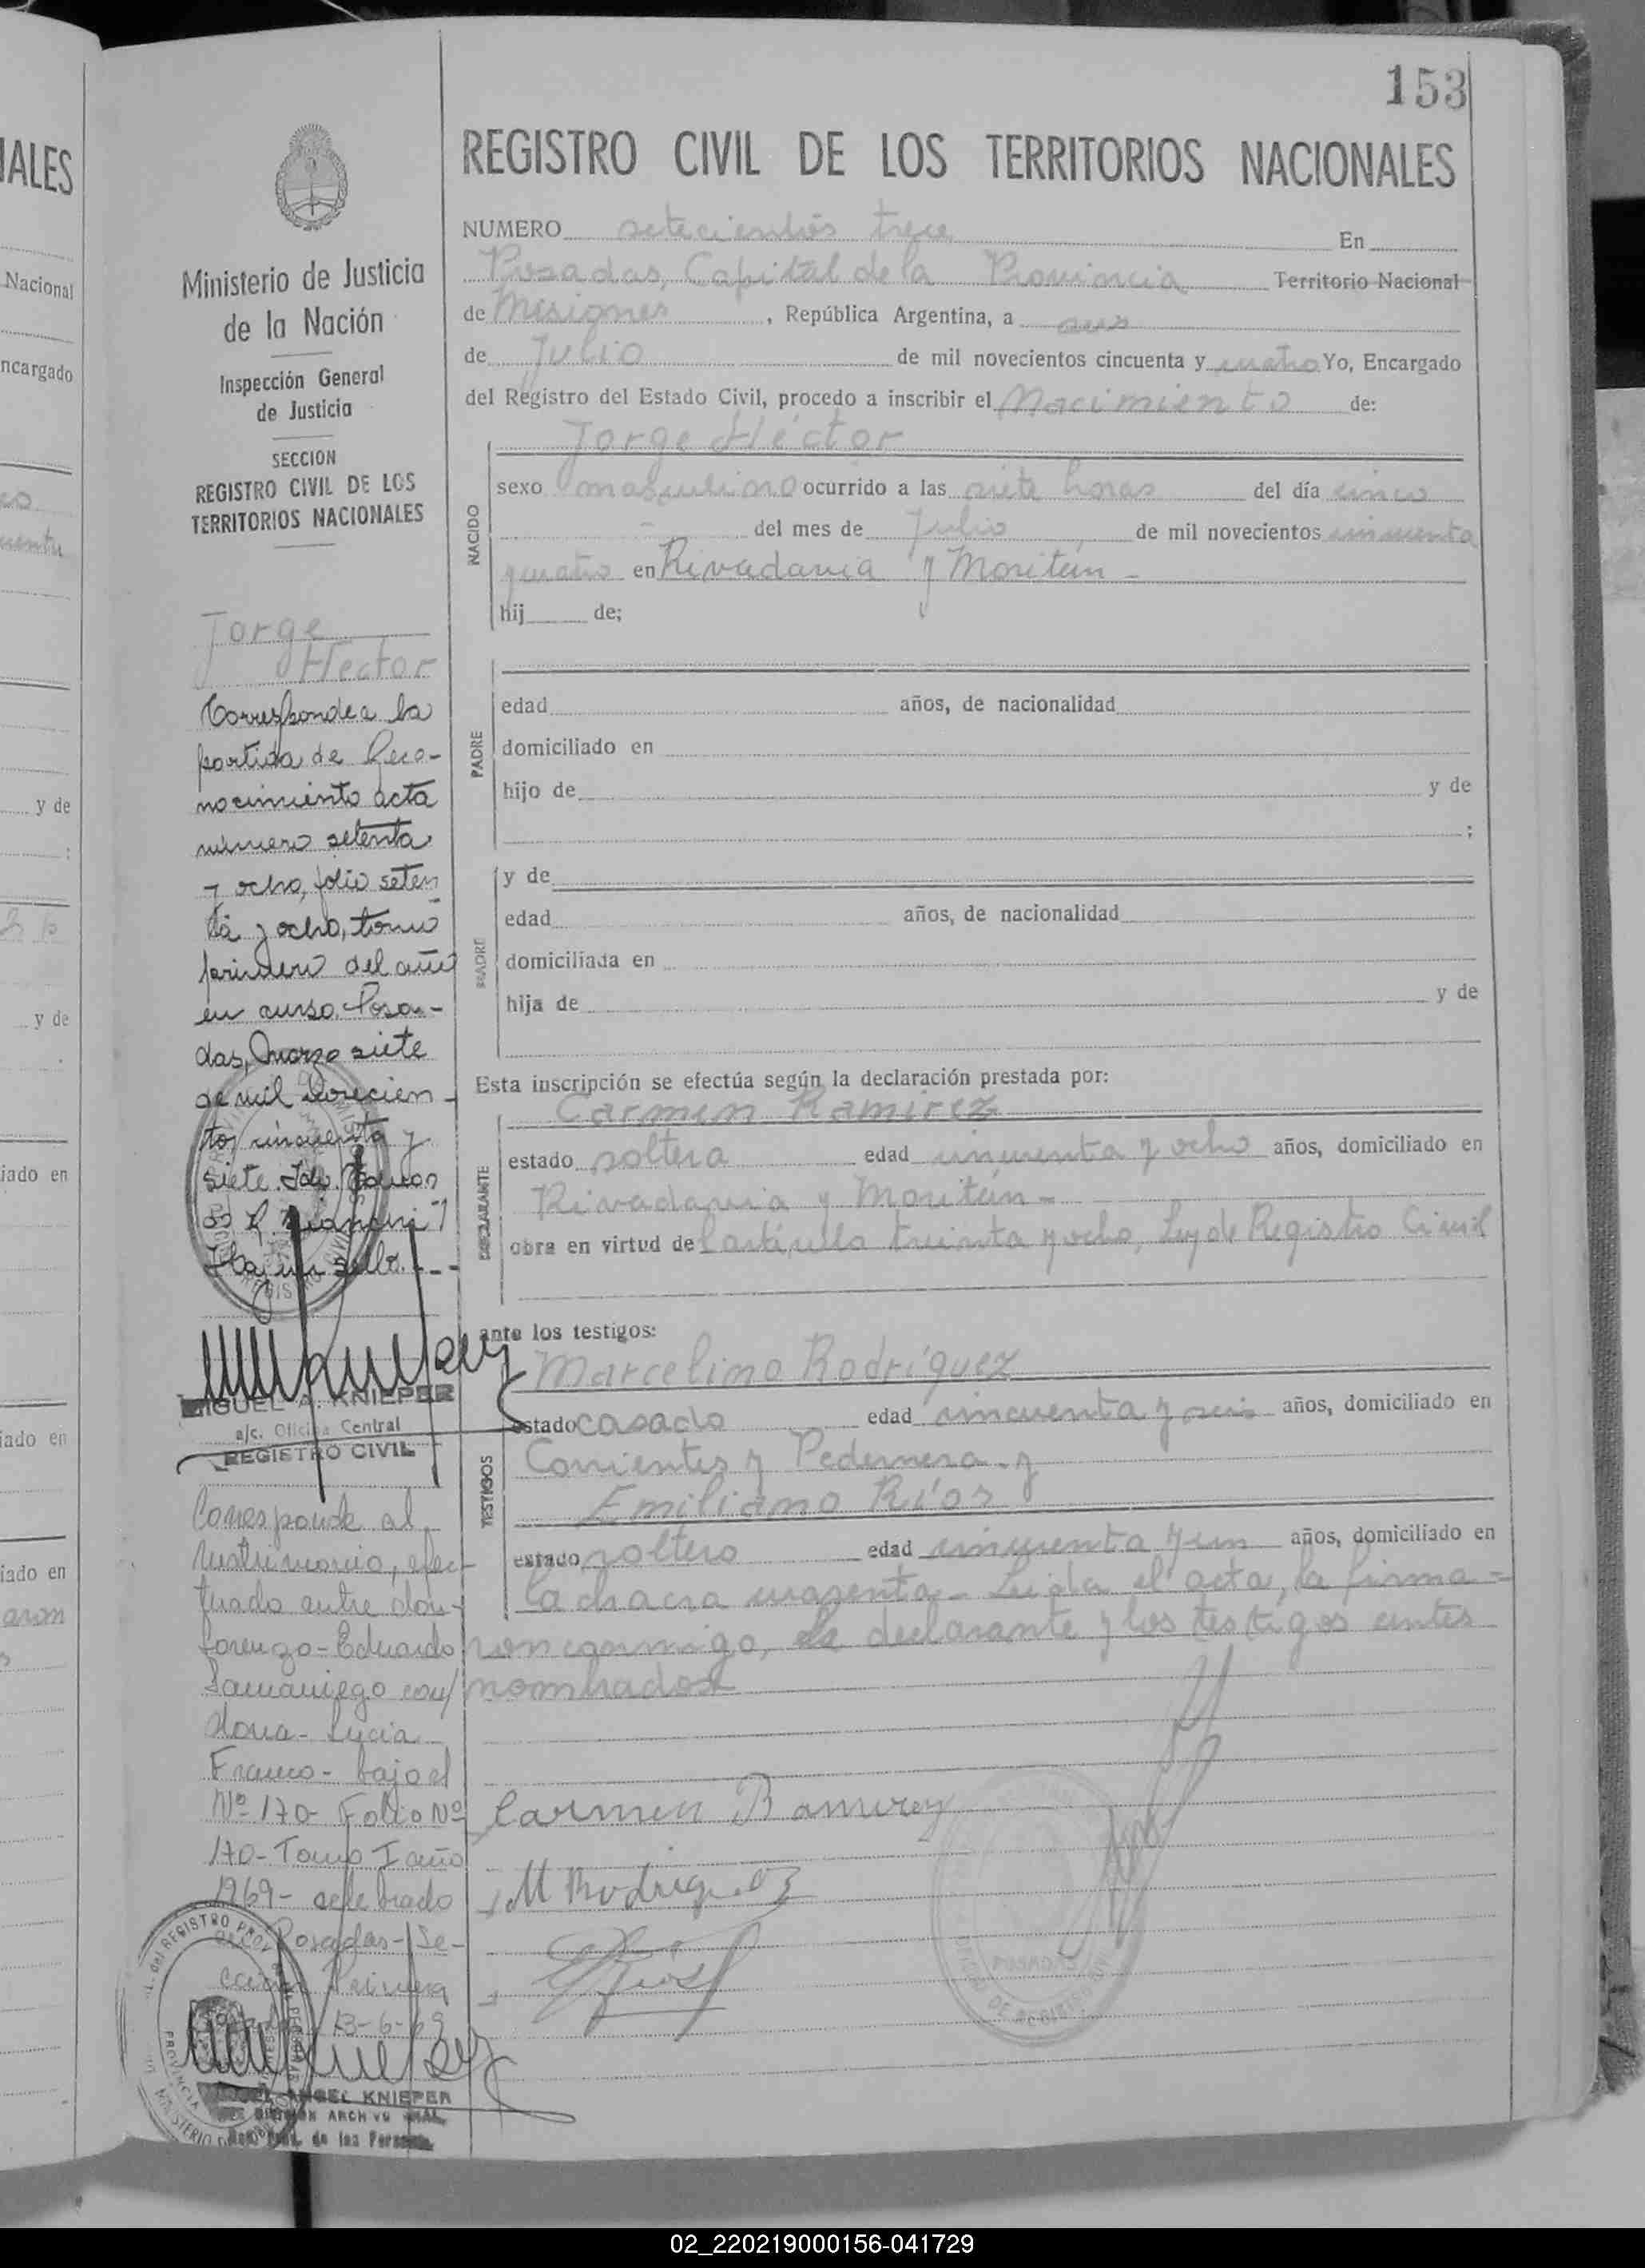 153
REGISTRO CIVIL DE LOS TERRITORIOS NACIONALES
NUMERO setecientos trece En
Posadas, Capital de la Provincia Territorio Nacional
de Misiones, República Argentina, a seis
de Julio de mil novecientos cincuenta y cuatro Yo, Encargado
del Registro del Estado Civil, procedo a inscribir el Nacimiento de:
NACIDO
Jorge Héctor
sexo masculino ocurrido a las siete horas del día cinco
- del mes de Julio de mil novecientos cincuenta
y cuatro en Rivadavia y Moritán -
hij de;
PADRE
edad años, de nacionalidad
domiciliado en
hijo de y de
;
MADRE
y de
edad años, de nacionalidad
domiciliada en
hija de y de
Esta inscripción se efectúa según la declaración prestada por:
DECLARANTE
Carmen Ramirez
estado soltera edad cincuenta y ocho años, domiciliado en
Rivadavia y Moritán -
obra en virtud del artículo treinta y ocho, Ley de Registro Civil
ante los testigos:
TESTIGOS
Marcelino Rodríguez
estado casado edad cincuenta y seis años, domiciliado en
Corrientes y Pedernera - y
Emiliano Ríos
estado soltero edad cincuenta y un años, domiciliado en
la chacra cuarenta - Leída el acta, la firma =
ron conmigo, la declarante y los testigos antes
nombrados
Carmen Ramirez
M Rodriguez
E Rios
POSADAS
Ministerio de Justicia
de la Nación
Inspección General
de Justicia
SECCION
REGISTRO CIVIL DE LOS
TERRITORIOS NACIONALES
Jorge
Hector
Corresponde a la
partida de Reco-
nocimiento acta
número setenta
y ocho, folio seten
ta y ocho, tomo
primero del año
en curso. Posa-
das, Marzo siete
de mil novecien
tos cincuenta y
siete.
Hay un sello. - - -
MIGUEL A. KNIEPER
a/c. Oficina Central
REGISTRO CIVIL
Corresponde al
matrimonio, efec-
tuado entre don-
Lorenzo - Eduardo
Samaniego con/
doña - Lucia
Franco - bajo el
Nº 170 - Folio Nº
170 - Tomo I año
1969 - celebrado
en Posadas - Se-
cción Primera
13-6-69
ANGEL KNIEPER
IALES
Nacional
ncargado
y de
y de
iado en
iado en
iado en
02_220219000156-041729